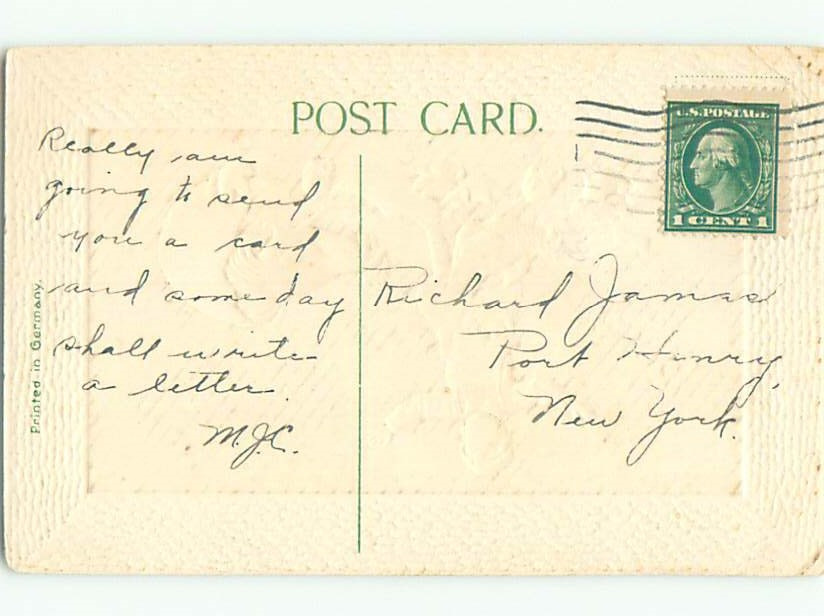 POST CARD.
U.S. POSTAGE
1 CENT 1
Really am
going to send
you a card
and some day
shall write
a letter.
M.J.C.
Richard James
Port Henry,
New York.
Printed in Germany.